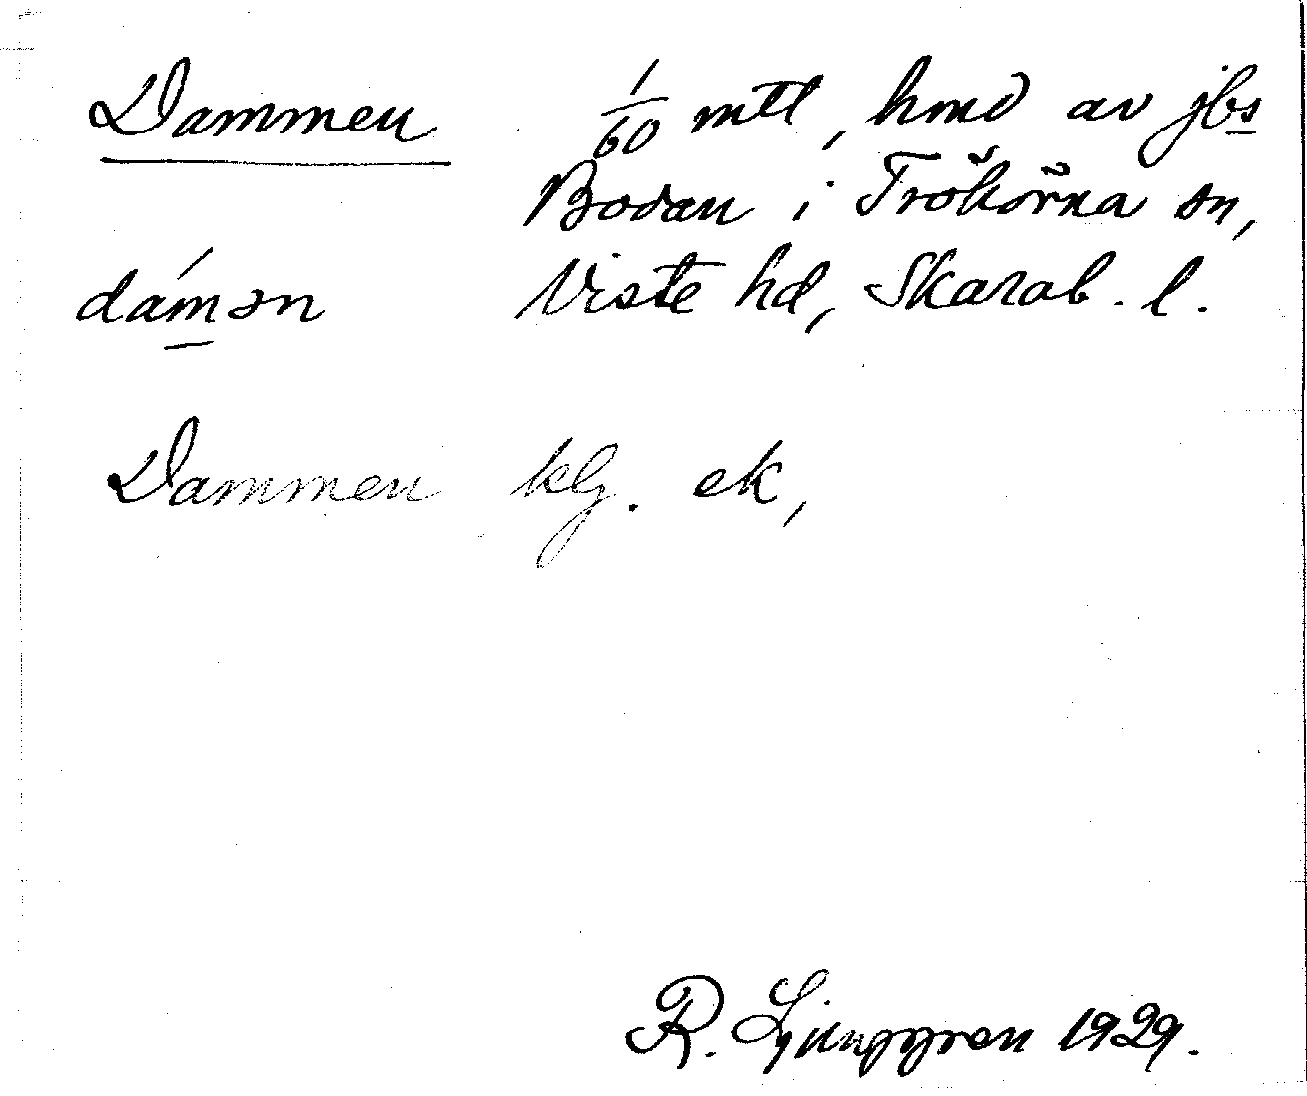 Dammen 1/60 mtl, hmd av jbs
Bodan i Trökörna sn,
dámən Viste hd, Skarab. l.
Dammen klg. ek,
R. Ljunggren 1929.